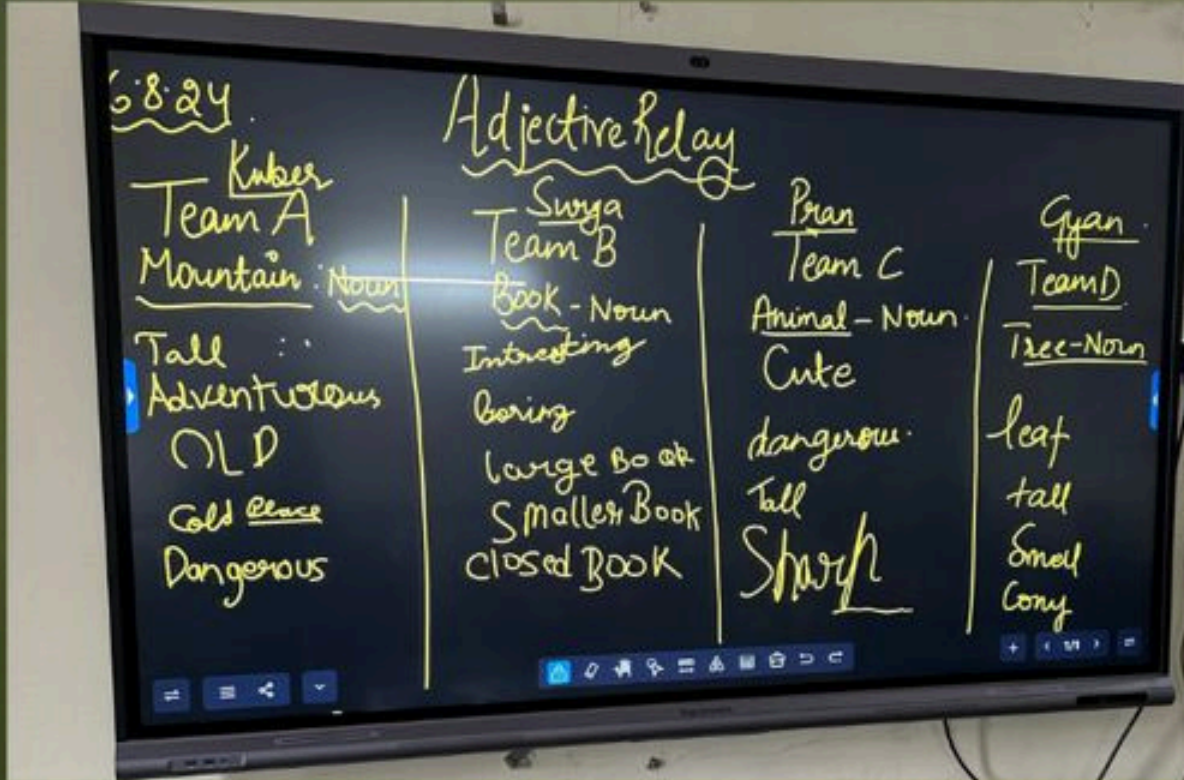 6.8.24
Adjective Relay
Kuber
Team A
Mountain : Noun
Tall
Adventurous
OLD
Cold Place
Dangerous
Surya
Team B
Book - Noun
Intresting
boring
large Book
Smaller Book
closed Book
Pran
Team C
Animal - Noun.
Cute
dangerous.
Tall
Sharp
Gyan.
Team D
Tree-Noun
leaf
tall
1/1